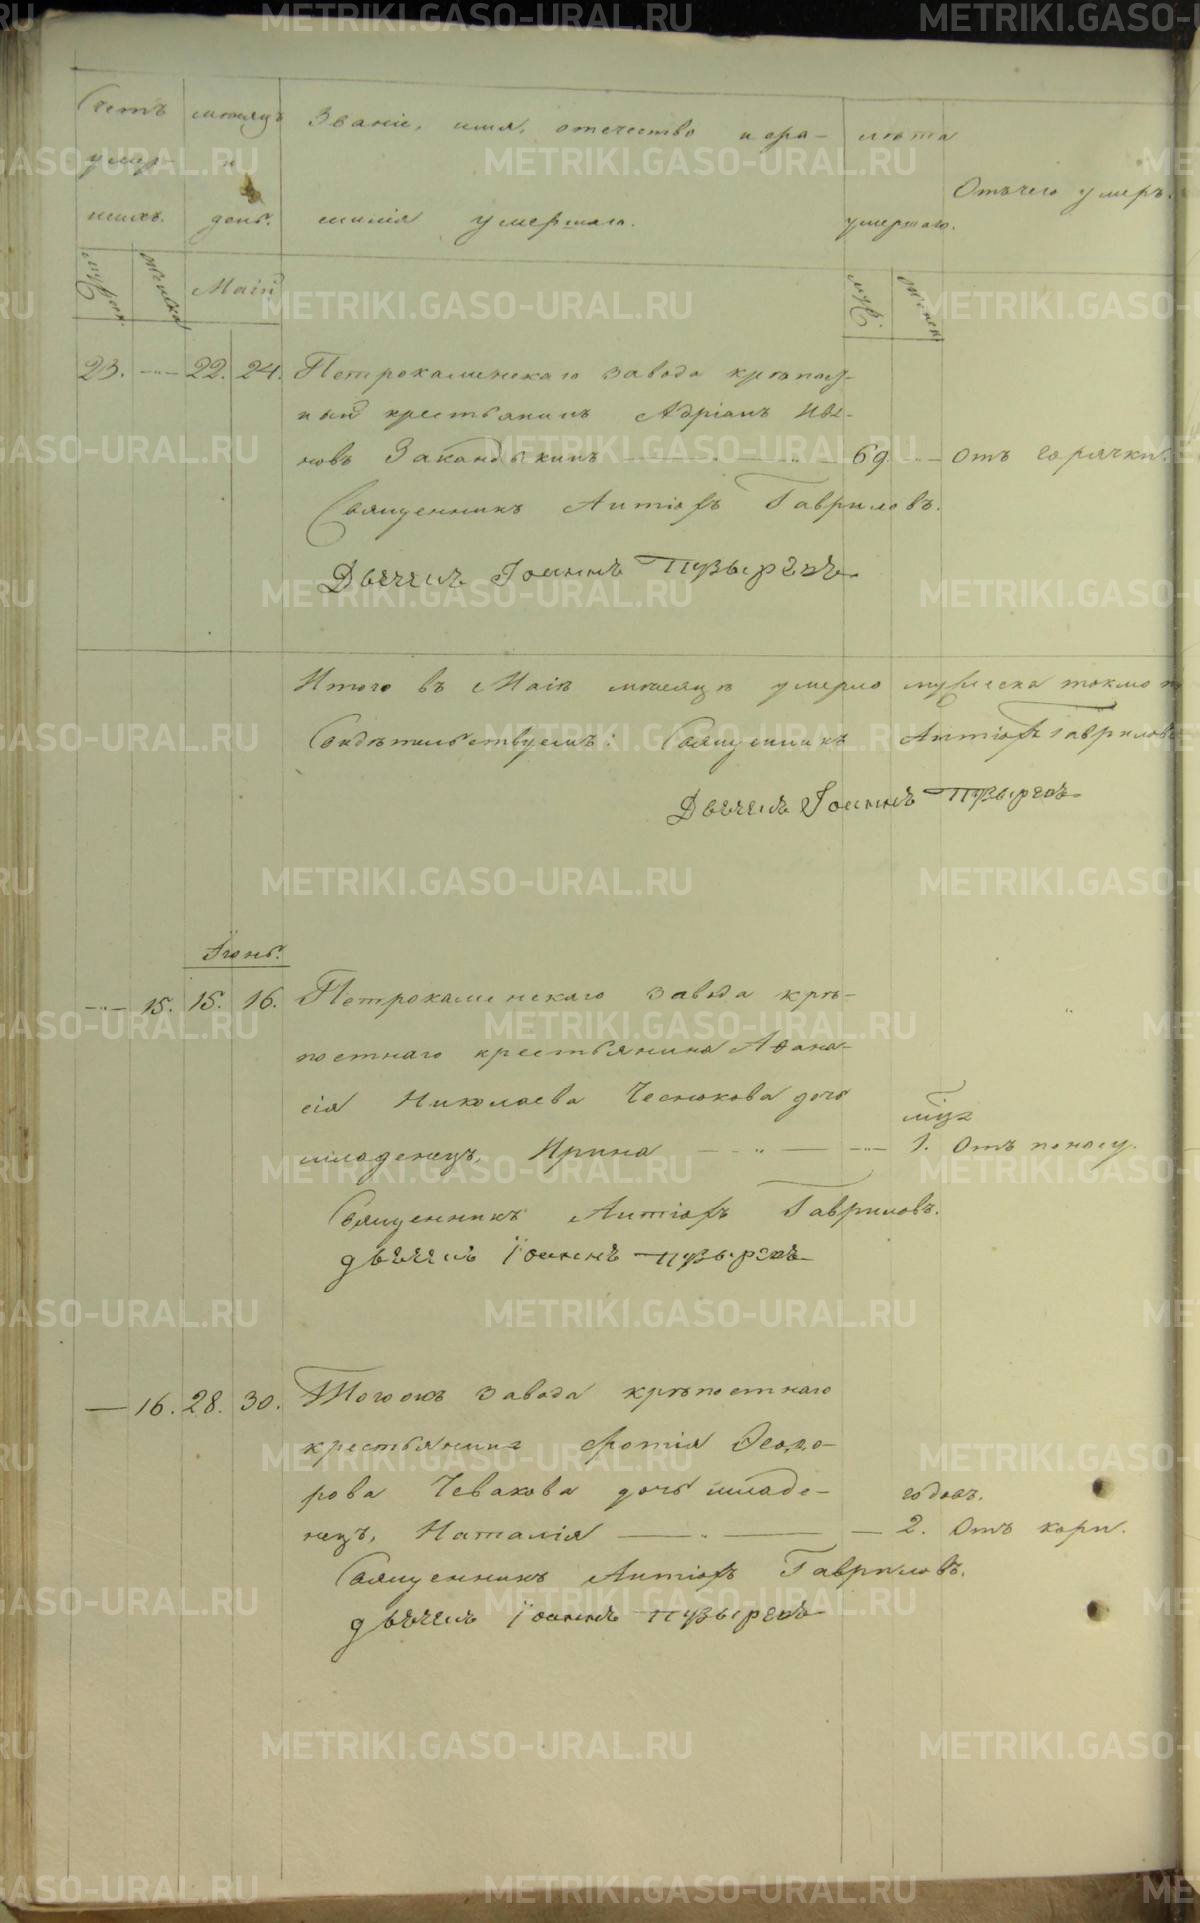 Счетъ умер-шихъ.
мѣсяцъ и день.
Званіе, имя, отечество и фа-
милія умершаго.
лѣта умершаго.
Отъ чего умеръ.
мужск.
женска
Маій
муж.
женск.
23. 22. 24. Петрокаменскаго завода крѣпост-
ный крестьянинъ Адріанъ Ива-
новъ 69 Отъ горячки.
Священникъ Антіохъ Гавриловъ.
Дьячекъ Іоаннъ Пузыревъ
Итого въ Маіѣ мѣсяцѣ умерло мужеска токмо
Свидѣтельствуемъ: Священникъ Антіохъ Гавриловъ
Дьячекъ Іоаннъ Пузыревъ
Іюнь.
15. 15. 16. Петрокаменскаго завода крѣ-
постнаго крестьянина Аѳана-
сія Николаева Чеснокова дочь
младенецъ, Ирина 1. Отъ поносу.
Священникъ Антіохъ Гавриловъ.
дьячекъ Іоаннъ Пузыревъ
16. 28. 30. Тогожъ завода крѣпостнаго
крестьянина Фотія Ѳеодо-
рова Чевакова дочь младе-
годовъ.
нецъ, Наталія 2. Отъ кори.
Священникъ Антіохъ Гавриловъ.
дьячекъ Іоаннъ Пузыревъ
METRIKI.GASO-URAL.RU